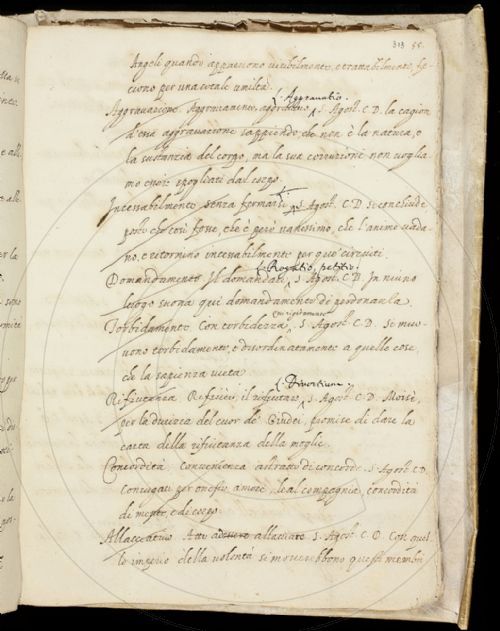 313 55.
Angeli quando appaiono visibilmente, e trattabilmente, fa-
ciono per una cotale umiltà.
Aggravatio.
Aggravazione. Aggravamento, aggravatione. S. Agost. C. D. la cagion
d'essa aggravazione sappiendo che non è la natura, o
la sustanzia del corpo, ma la sua corruzione non voglia-
mo essere spogliati dal corpo.
Incessabilmente. senza fermarsi. S. Agost. C. D. se conchiude
però che così fosse, che è però vanissimo, che l'anime vada-
no, e ritornino incessabilmente per que' circuiti.
Rogatio, petitio.
Domandamento. Il domandare. S. Agost. C. D. In niuno
luogo suona qui domandamento di perdonanza.
Torbidamente. Con torbidezza. S. Agost. C. D. si muo-
vono torbidamente, e disordinatamente a quelle cose
che la sapienza vieta.
Divortium.
Rifiutanza. Refiuto, il rifiutare. S. Agost. C. D. Moisè,
per la durizia del cuor de' Giudei, promise di dare la
carta della rifiutanza della moglie.
Concordità. Convenienza astratto di concorde. S. Agost. C. D.
Coniugati per onesto amore, leal compagnia, concordità
di mente, e di corpo.
Allacciativo. Atto S. Agost. C. D. Con quel-
lo imperio della volontà si moverebbono questi membri